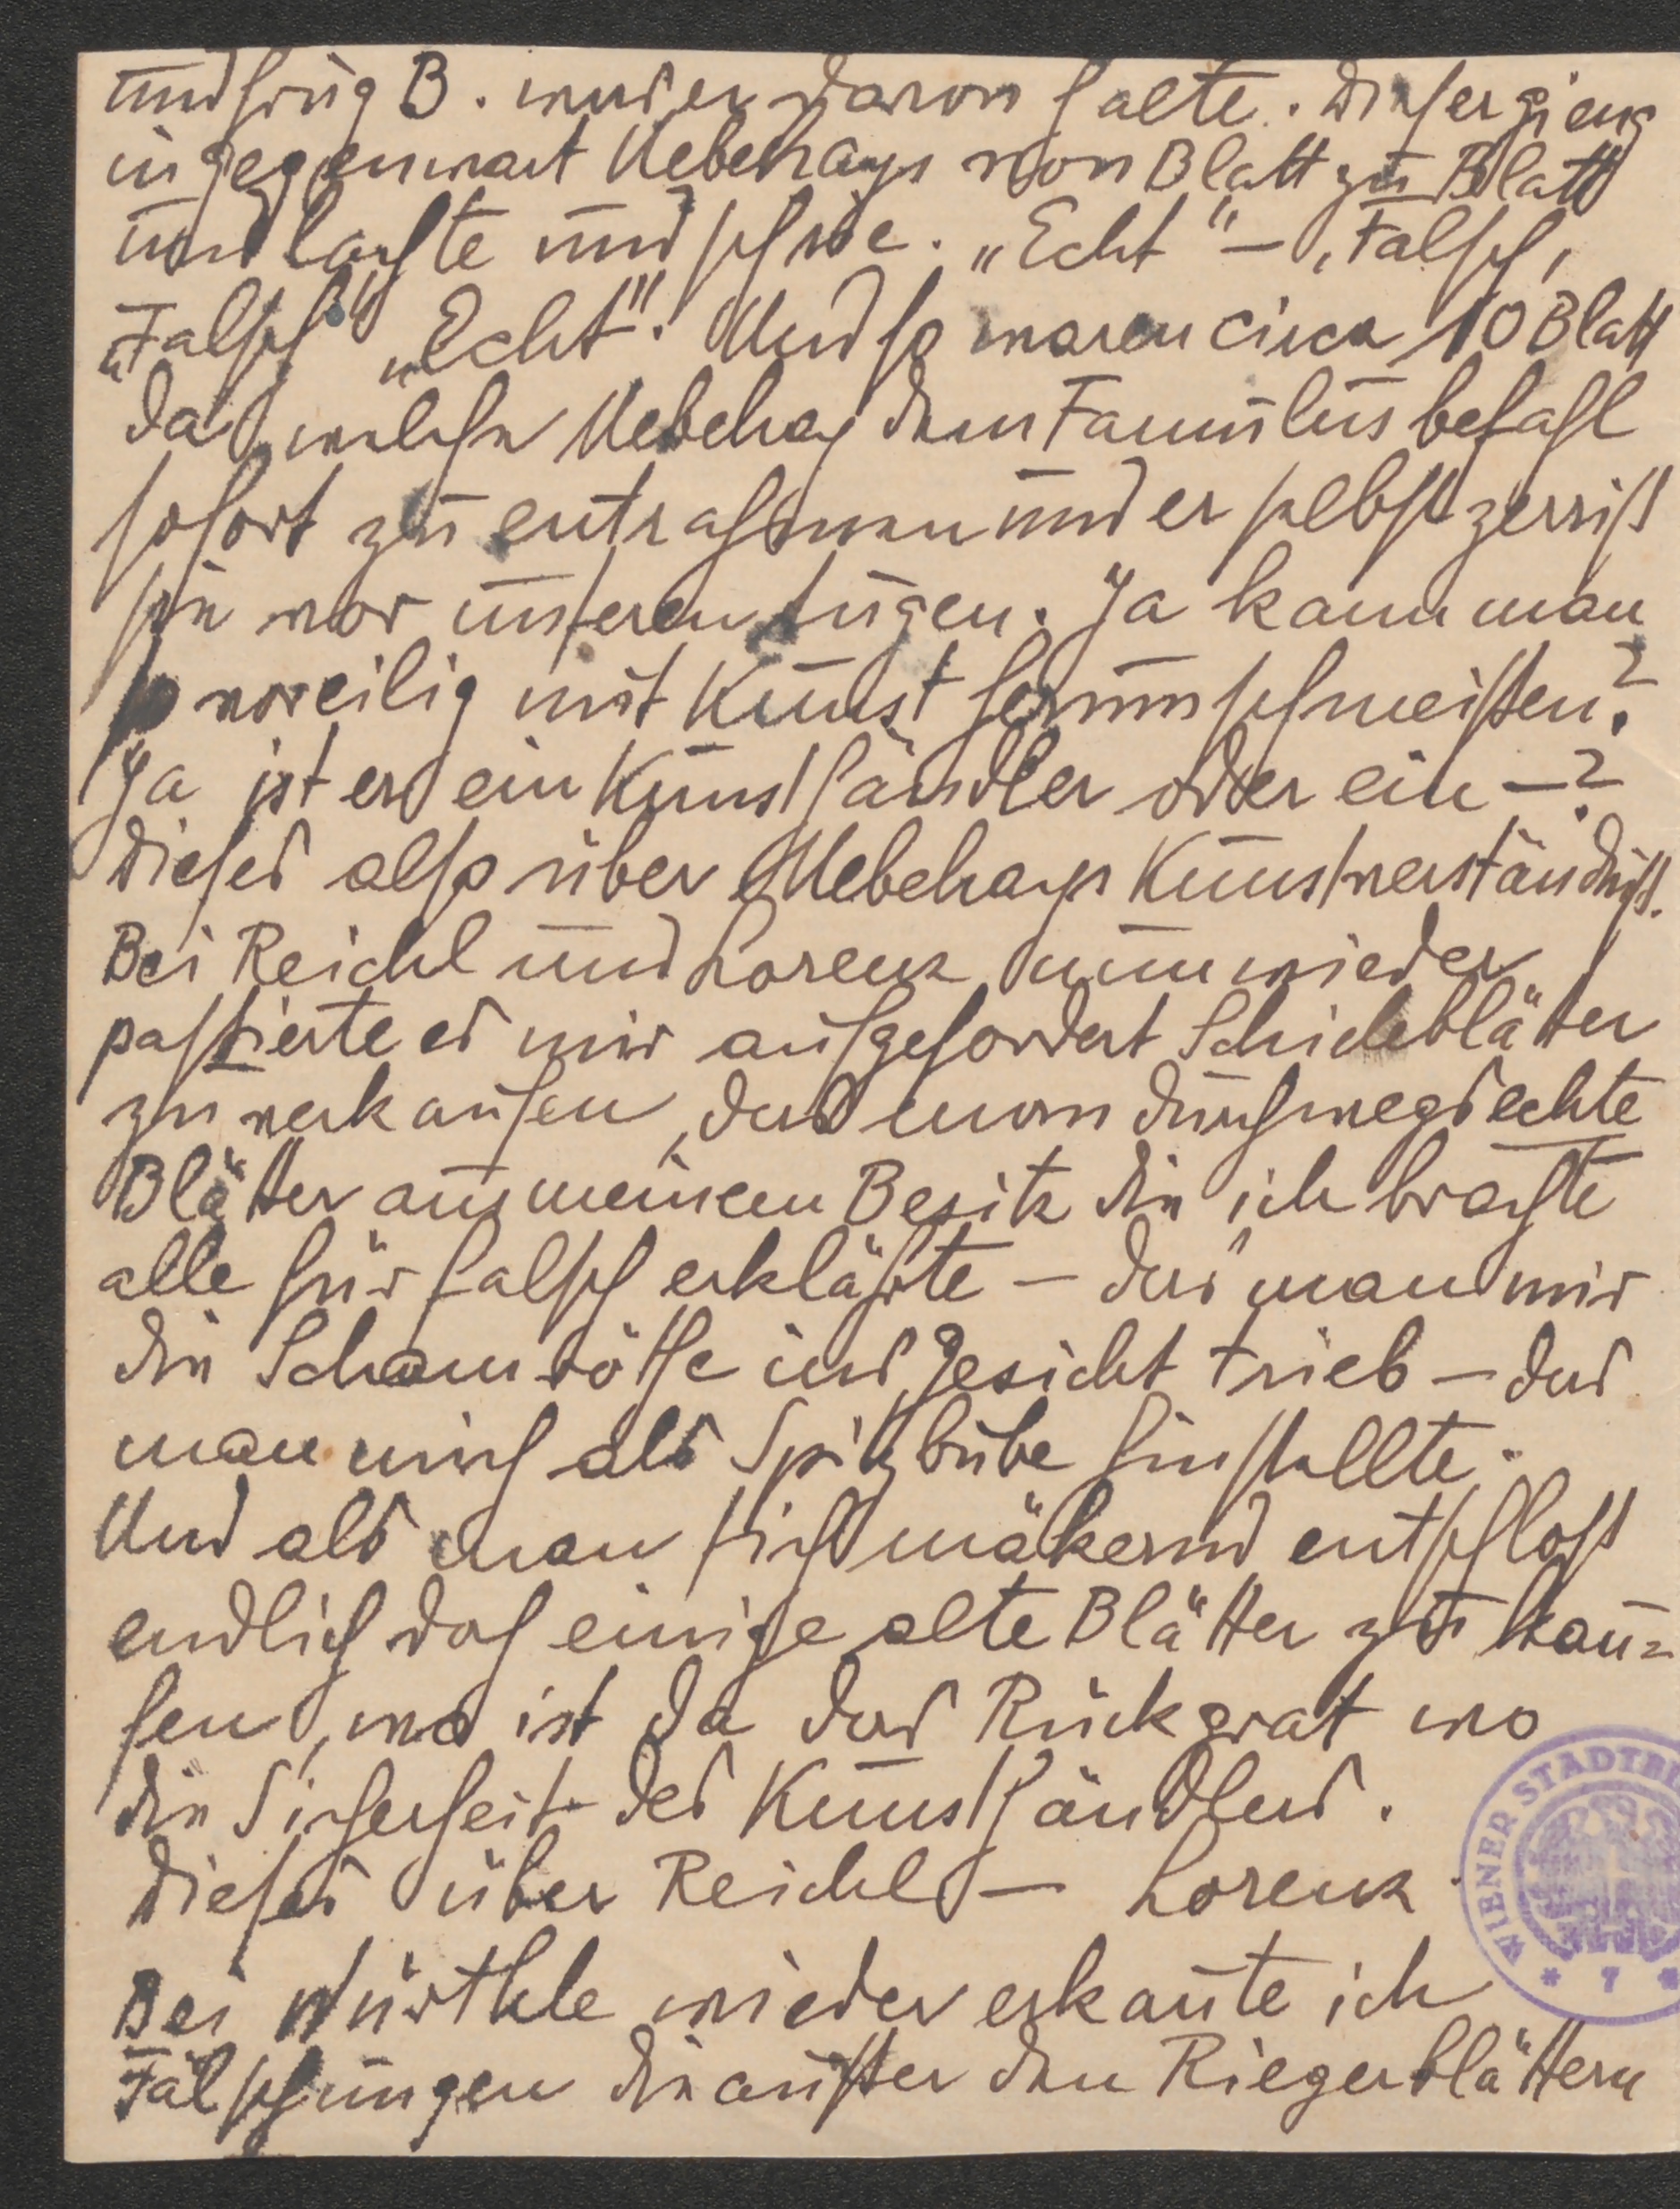 und frug B. was er davon halte. Dieser gieng
in gegenwart Nebehays von Blatt zu Blatt
und lachte und schrie. „Echt" – „Falsch,
„Falsch" „Echt". Und so waren circa 10 Blatt
da, welche Nebehay dem Famulus befahl
sofort zu entrahmen und er selbst zerriss
sie vor unseren Augen. Ja kann man
so voreilig mit Kunst herumschmeissen?
Ja ist er ein Kunsthändler oder ein –?
Dieses also über Nebehays Kunstverständniss.
Bei Reichel und Lorenz nun wieder
passierte es mir aufgefordert Schieleblätter
zu verkaufen, das man durchwegs echte
Blätter aus meinem Besitz die ich brachte
alle für falsch erklährte – das man mir
die Schamröthe ins Gesicht trieb – das
man mich als Spitzbube hinstellte.
Und als man sich mäkernd entschloss
endlich doch einige alte Blätter zu kau=
fen, wo ist da das Rückgrat wo
die Sicherheit des Kunsthändlers.
Dieses über Reichel – Lorenz.
Bei Würthle wieder erkannte ich
Fälschungen die ausser den Riegerblättern
WIENER STADTB
* 7 *